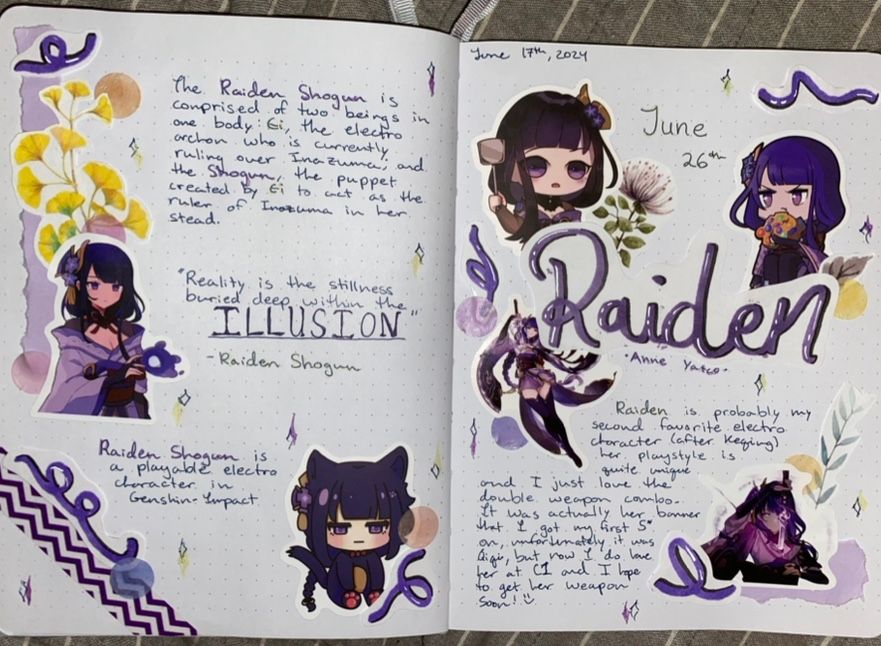 The Raiden Shogun is
comprised of two beings in
one body: Ei, the electro
archon who is currently
ruling over Inazuma, and
the Shogun, the puppet
created by Ei to act as the
ruler of Inazuma in her
stead.
"Reality is the stillness
buried deep within the
ILLUSION"
- Raiden Shogun
Raiden Shogun is
a playable electro
character in
Genshin Impact
June 17th, 2024
June
26th
Raiden
·Anne Yatco·
Raiden is probably my
second favorite electro
character (after Keqing)
her playstyle is
quite unique
and I just love the
double weapon combo.
It was actually her banner
that I got my first 5*
on, unfortunately it was
Qiqi, but now I do have
her at C1 and I hope
to get her weapon
soon! :)